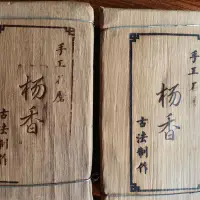 手工
杨香
古法制作
手工
杨香
古法制作